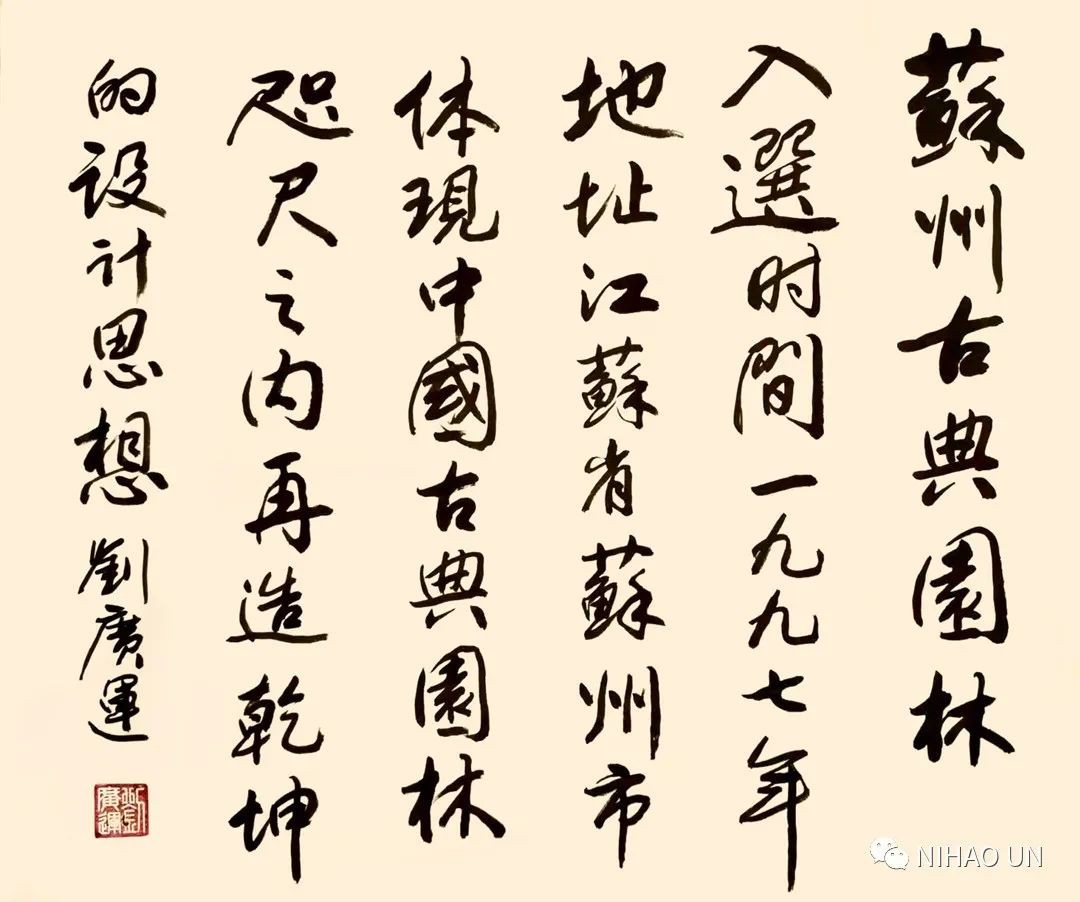 蘇州古典園林
入選时間一九九七年
地址江蘇省蘇州市
体現中國古典園林
咫尺之内再造乾坤
的设计思想 劉廣運
劉廣運
NIHAO UN